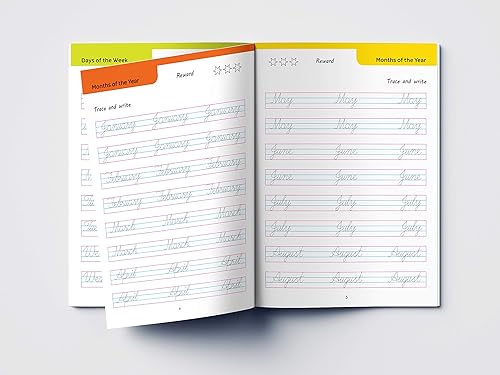 Days of the Week
Months of the Year
Reward
Trace and write
January January January
January January January
February February February
February February February
March March March
March March March
April April April
April April April
Tu
Tu
We
We
Reward
Months of the Year
Trace and write
May May May
May May May
June June June
June June June
July July July
July July July
August August August
August August August
5